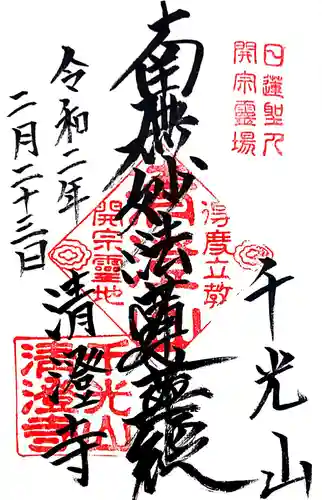 日蓮聖人
開宗靈場
千光山
得度立教
南無妙法蓮華經
開宗靈地
清澄寺
千光山
清澄寺
令和二年
二月二十三日